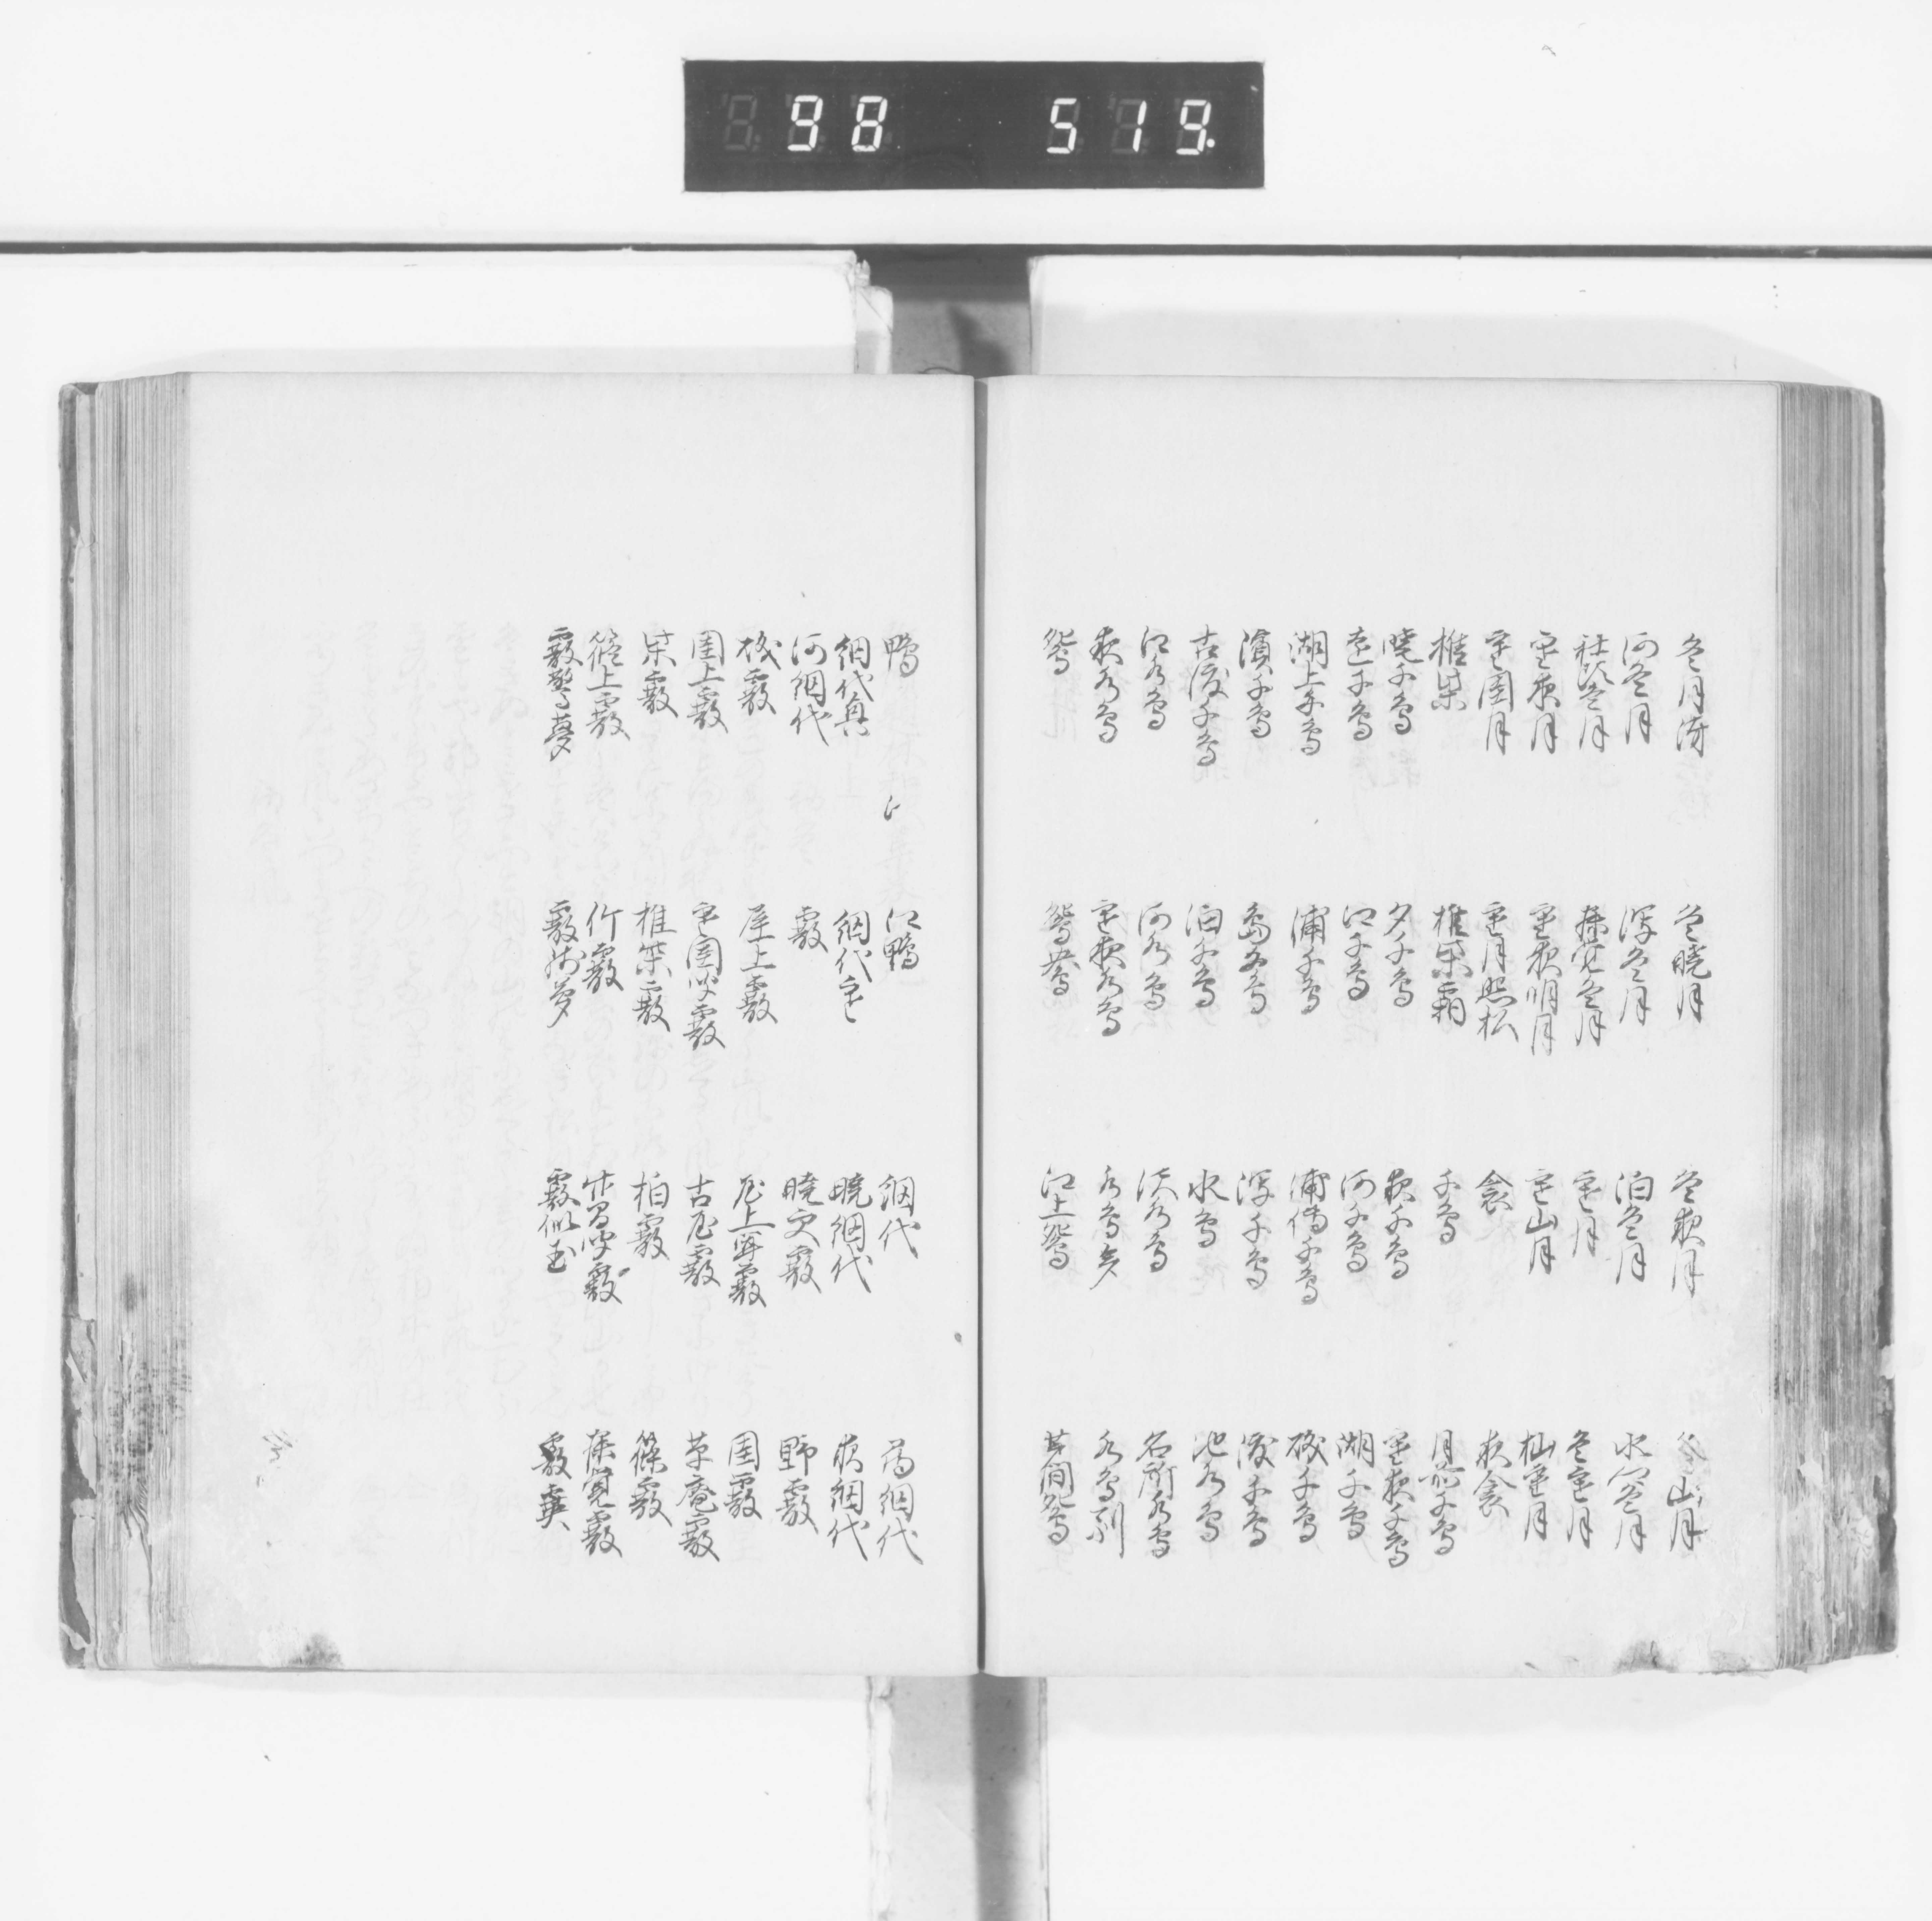 98 519
冬月冴 冬暁月 冬夜月 冬山月
河冬月 湊冬月 泊冬月 水郷冬月
社頭冬月 寝覚冬月 寒月 冬寒月
寒夜月 寒夜明月 寒山月 杣寒月
寒閨月 寒月照松 衾 夜衾
椎柴 椎柴霜 千鳥 月前千鳥
暁千鳥 夕千鳥 夜千鳥 寒夜千鳥
遠千鳥 江千鳥 河千鳥 湖千鳥
湖上千鳥 浦千鳥 浦傳千鳥 磯千鳥
濱千鳥 島千鳥 湊千鳥 渡千鳥
古渡千鳥 泊千鳥 水鳥 池水鳥
江水鳥 河水鳥 水鳥 名所水鳥
夜水鳥 寒夜水鳥 水鳥多 水鳥
鴛 鴛鴦 江上鴛 芦間鴛
鴨 江鴨 網代 網代
網代興 網代寒 暁網代 夜網代
河網代 霰 暁更霰 野霰
磯霰 屋上霰 屋上聞霰 閨霰
閨上霰 寒閨聞霰 古屋霰 草庵霰
柴霰 椎柴霰 柏霰 篠霰
篠上霰 竹霰 寝覚霰
霰驚夢 霰残夢 霰似玉